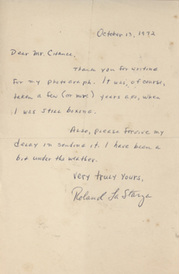 October 17, 1972
Dear Mr. 
Thank you for writing
for my photograph. It was, of course,
taken a few (or more) years ago, when
I was still boxing.
Also, please forgive my
delay in sending it. I have been a
bit under the weather.
Very truly yours,
Roland La Starza